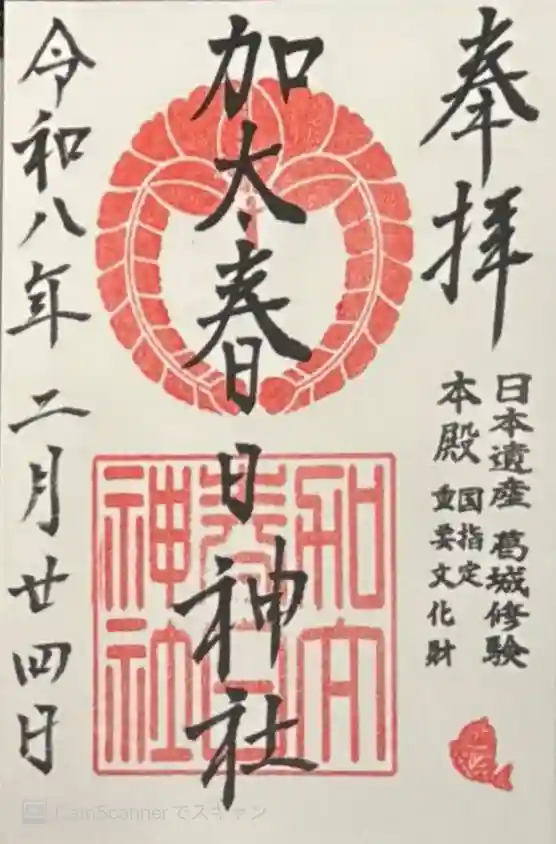 奉拝
日本遺産 葛城修験
本殿 国指定
重要文化財
加太春日神社
令和八年 二月廿四日
CamScannerでスキャン